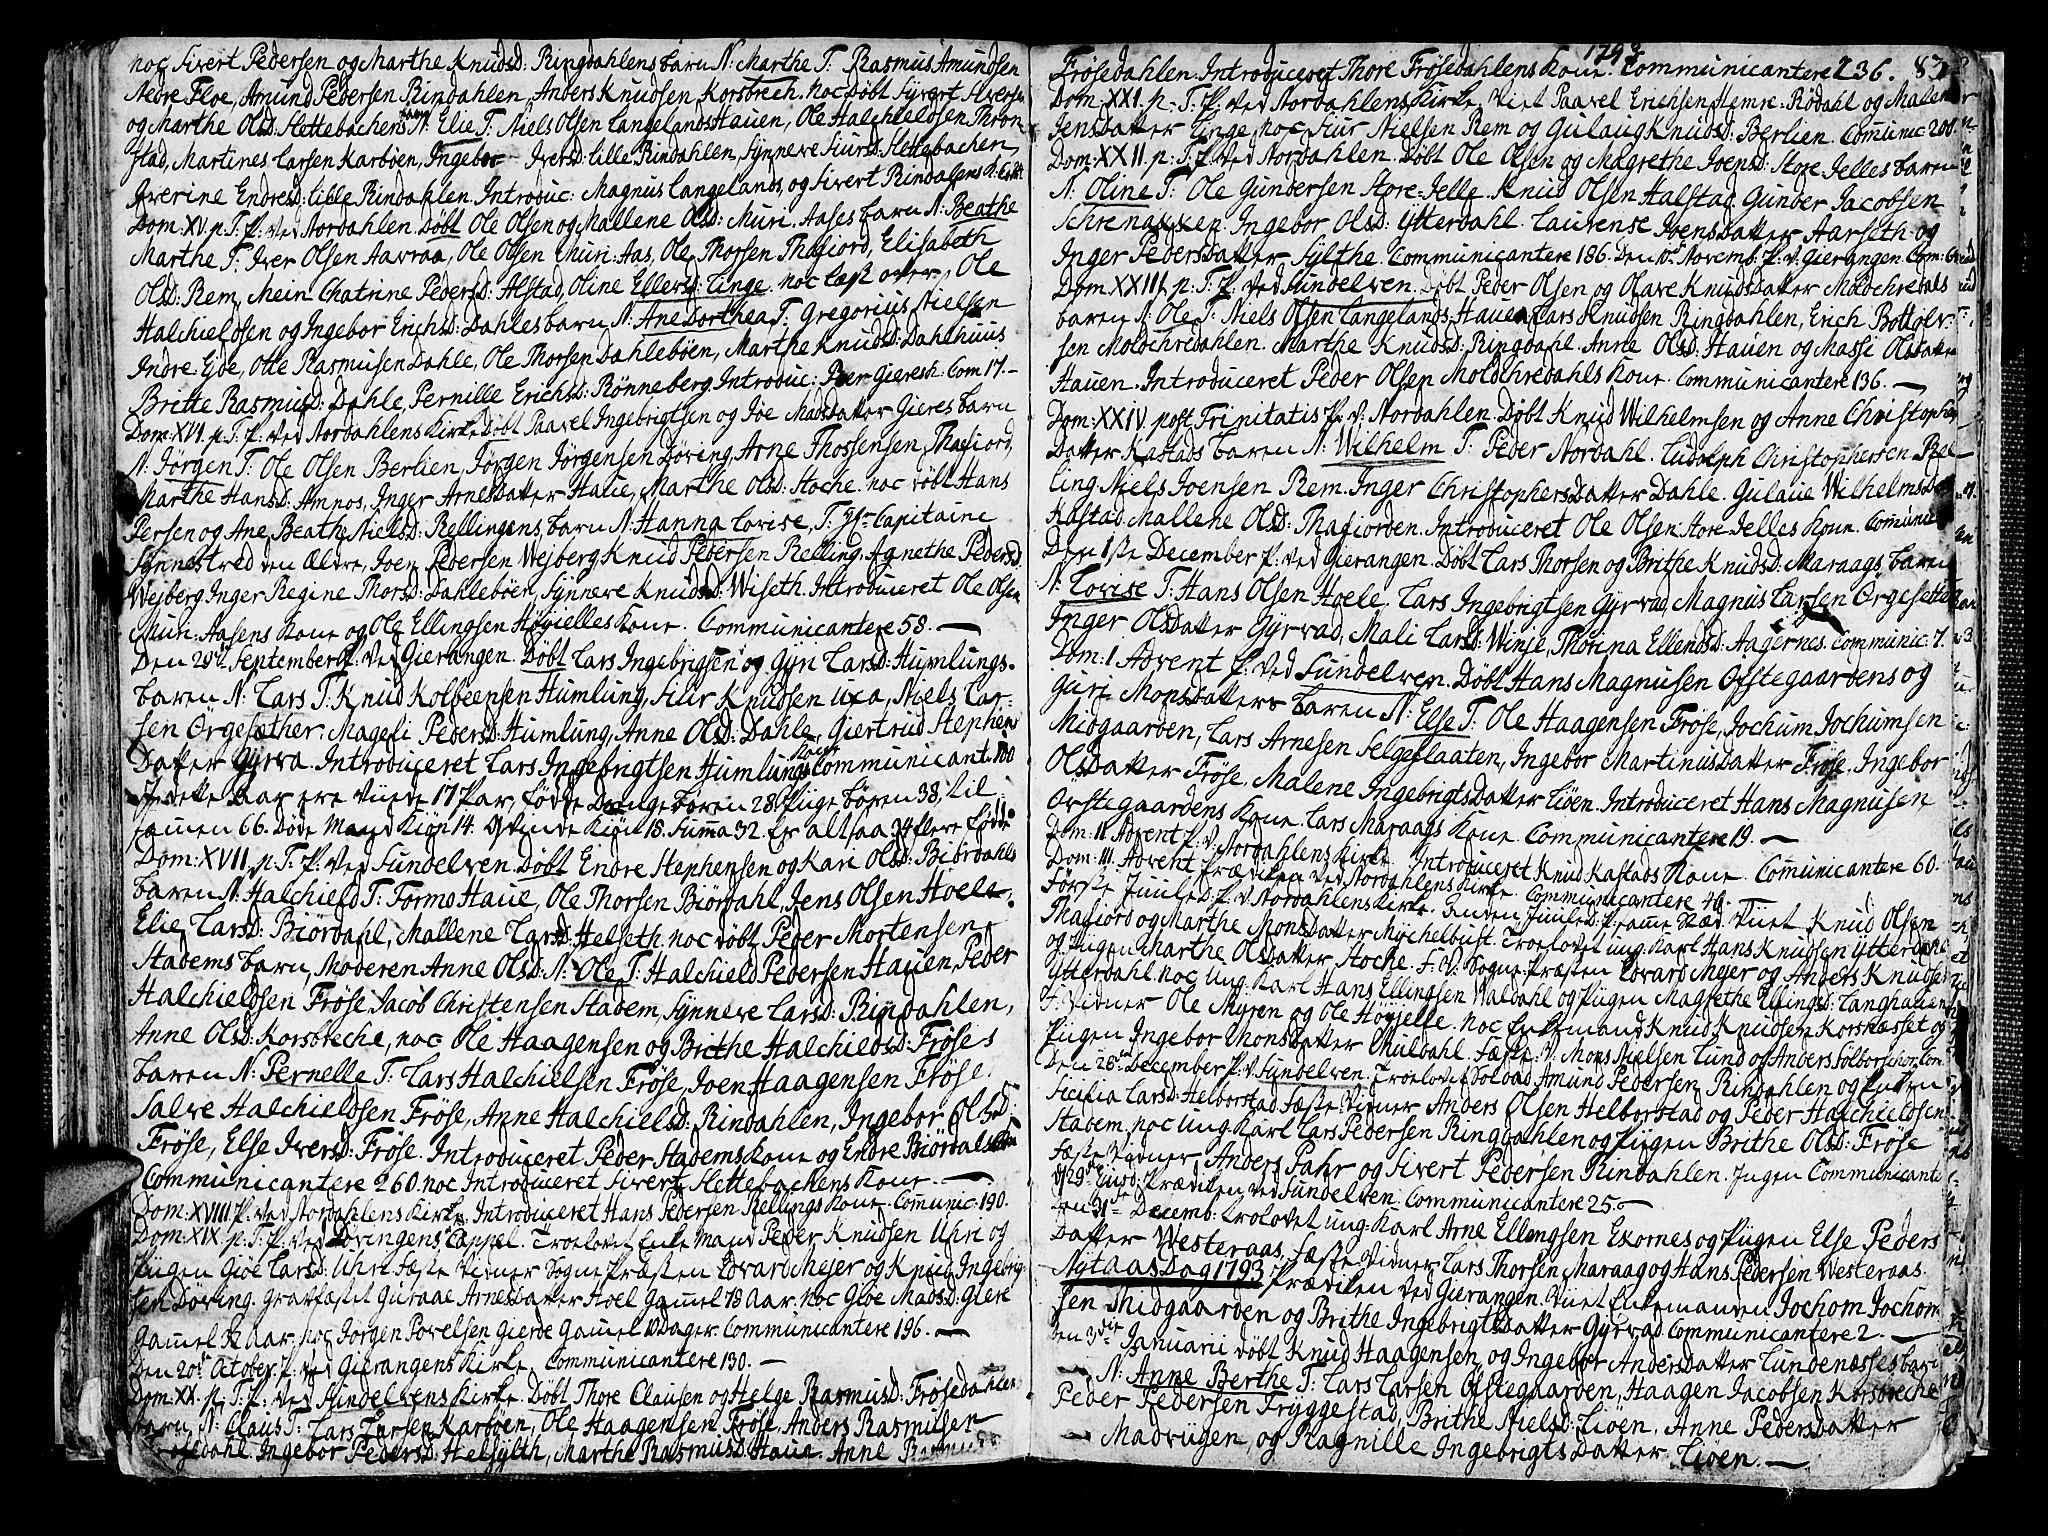 noc Sivert Pedersen og Marthe Knudsd: Ringdahlens barn N: Marthe T: Rasmus Amundsen
Nedre Floe, Amund Pedersen Rindahlen, Anders Knudsen Korsbrech. noc döbt Syvert Iversen
og Marthe Olsd: Slettebachens barn N: Elie T: Niels Olsen Langelands Hauen, Ole Halchieldsen Thron-
stad, Martines Larsen Karböen, Ingebor Iversd: Lille Rindahlen, Synneve Siursd: Slettebachen
Iverine Endresd: Lille Rindahlen. Introduc: Magnus Langelands, og Sivert Rindalens K:
Dom: XV. p. T. P. ved Nordahlen. Döbt Ole Olsen og Mallene Olsd: Muri-Aases barn N: Beathe
Marthe T: Iver Olsen Aavraa, Ole Olsen Muri-Aas, Ole Thorsen Thafiord, Elisabeth
Olsd: Rem, Mein Chatrine Pedersd: Alstad, Oline Ellersd: Linge. noc læst over, Ole
Halchieldsen og Ingebor Erichsd: Dahles barn N: Ane Dorthea T: Gregorius Nielsen
Indre-Eide, Otte Rasmusen Dahle, Ole Thorsen Dahleböen, Marthe Knudsd: Dahlhuus
Britte Rasmusd: Dahle, Pernille Erichsd: Rönneberg. Introduc: Com 17.
Dom: XVI. p. T. P. ved Nordahlens Kirke Döbt Paavel Ingebrigtsen og Giöe Madsdatter Gieres barn
N: Jörgen T: Ole Olsen Berlien, Jörgen Jörgensen Döving, Arne Thossensen Thafiord,
Marthe Hansd: Amnos, Inger Arnesdatter Haue, Marthe Olsd: Hoche. noc döbt Hans
Persen og Ane Beathe Nielsd: Rellingens barn N: Hanna Lovise, T: Hr Capitaine
Synnestved den Ældre, Joen Pedersen Wejberg Knud Pedersen Relling. Agnethe Pedersd:
Wejberg Inger Regine Thorsd: Dahleböen, Synneve Knudsd: Wiseth. Introduceret Ole Olsen
Muri-Aasens Kone og Ole Ellingsen Höyielles Kone. Communicantere 58.
Den 29de September P. ved Gierangen. Döbt Lars Ingebrigtsen og Gyri Larsd: Humlungs
baren N: Lars T: Knud Kolbeensen Humlung, Siur Knudsen Uxa, Niels Lar-
sen Orgesæther. Mageli Pedersd: Humlung, Anne Olsd: Dahle, Giertrud Stephen
Datter Gyrva. Introduceret Lars Ingebrigtsen Humlungs Kone Communicant. 100
I dette Aar ere Viiede 17 Par, födde Drenge bören 28 Piige bören 38, til
samen 66. Döde Mand Kiön 14. Qvinde Kiön 18. Summa 32. Er altsaa 34 flere födde
Dom: XVII. p. T. P. ved Sundelven. Döbt Endre Stephensen og Kari Olsd: Biördahls
baren N: Halchield T: Tormo Haue, Ole Thorsen Biördahl, Jens Olsen Hoele.
Elie Larsd: Biördahl, Mallene Larsd: Helseth. noc döbt Peder Mortensen
Stadems barn, Moderen Anne Olsd: N: Ole T: Halchield Pedersen Hauen, Peder
Halchieldsen Fröse, Jacob Christensen Stadem, Synneve Larsd: Rindahlen,
Anne Olsd: Korsbreche, noc Ole Haagensen og Brithe Halchieldsd: Fröses
baren N: Pernelle T: Lars Halchielsen Fröse, Joen Haagensen Fröse.
Salve Halchieldsen Fröse, Anne Halchielsd: Rindahlen, Ingebor Olsd:
Fröse, Else Iversd: Fröse. Introduceret Peder Stadems Kone og Endre Biördals Kone
Communicantere 260. noc Introduceret Sivert Slettebachens Kone.
Dom: XVIII P. ved Nordahlens Kirke, Introduceret Hans Pedersen Rellings Kone. Comunic: 190.
Dom: XIX p. T. P. ved Dövingens Cappel. Troelovet Enke Mand Peder Knudsen Uhri og
Piigen Giöe Larsd: Uhri Fæste Vidner Sogne Præsten Edvard Mejer og Knud Ingebrig-
sen Döving. Gravfæstet Guraae Arnesdatter Hoel Gamel 78 Aar. noc Giöe Madsd: Giere
Gamel Aar. noc Jörgen Povelsen Gierde Gamel Dager. Communicantere 196.
Den 20de October P. ved Gierangens Kirke, Communicantere 130.
Dom: XX. p. T. P. ved Sundelvens Kirke. Döbt Thore Clausen og Helge Rasmusd: Frösedahlens
barn N: Claus T: Lars Larsen Karböen, Ole Haagensen Fröse, Anders Rasmusen
Frösedahl. Ingebor Pedersd: Helsylth, Marthe Rasmusd: Haue. Anne
1793 83
Frösedahlen. Introduceret Thore Frösedahlens Kone. Communicantere 236.
Dom: XXI. p. T. P. ved Nordahlens Kirke Viet Paavel Erichsen Hemre-Rödahl og Malene
Jensdatter Linge, noc Siur Nielsen Rem og Gulaug Knudsd: Berlien. Comunic 200.
Dom: XXII. p. T. P. ved Nordahlen. Döbt Ole Olsen og Magrethe Joensd: Store-Jelles baren
N: Oline T: Ole Gundersen Store-Jelle. Knud Olsen Halstad, Gunder Jacobsen
Schrenaxxen Ingebor Olsd: Ytterdahl. Laurense Ivensdatter Aarseth og
Inger Pedersdatter Sylthe. Communicantere 186. Den 10de Novemb: P. v. Gierangen Com:
Dom: XXIII. p. T. P. ved Sundelven. Döbt Peder Olsen og Olave Knudsdatter Moldchredals
baren N: Ole T: Niels Olsen Langelands-Hauen, Lars Knudsen Ringdahlen, Erich Bottolv-
sen Moldchredahlen. Marthe Knudsd: Ringdahl. Anne Olsd: Hauen og Massi Olsdatter
Hauen. Introduceret Peder Olsen Moldchredahls Kone. Communicantere 136.
Dom: XXIV. post Trinitatis P. v. Nordahlen. Döbt Knud Wilhelmsen og Anne Christophers
Datter Kastads baren N: Wilhelm T: Peder Nordahl. Ludolph Christophersen Rel-
ling Niels Joensen Rem. Inger Christophersdatter Dahle. Gulaue Wilhelmsd:
Kastad, Mallene Olsd: Thafiorden. Introduceret Ole Olsen Store-Jelles Kone. Comunic
Den 1ste December P. ved Gierangen. Döbt Lars Thorsen og Brithe Knudsd: Maraags baren
N: Lovise T: Hans Olsen Hoele. Lars Ingebrigtsen Gyrvad, Magnus Larsen Örgesætter
Inger Olsdatter Gyrvad, Mali Larsd: Winje, Thorina Ellensd: Aagernes. Communic: 7.
Dom: I Advent P. ved Sundelven. Döbt Hans Magnusen Ofstegaardens og
Guri Monsdatters baren N: Else T: Ole Haagensen Fröse, Jochum Jochumsen
Midgaarden, Lars Arnesen Selgeslaaten, Ingebor Martinusdatter Fröse, Ingebor
Olsdatter Fröse, Malene Ingebrigtsdatter Liöen. Introduceret Hans Magnusen
Ofstegaardens Kone. Lars Maraags Kone. Communicantere 19.
Dom: II Advent P. v. Nordahlens Kirke. Introduceret Knud Kastads Kone. Comunicantere 60.
Dom: III. Advent Prædiken ved Nordahlens Kirke. Communicantere 46.
Förste Juuled: P. v. Nordahlens Kirke. Anden Juuled: P. samme Stæd. Viiet Knud Olsen
Thafiord og Marthe Monsdatter Mychelbust. Troelovet ung Karl Hans Knudsen Ytterdahl
og Piigen Marthe Olsdatter Hoche. F. V. Sogne Præsten Edvard Mejer og Anders Knudsen
Ytterdahl noc ung Karl Hans Ellingsen Waldahl og Piigen Magrethe Ellingsd: Langhauen
F. Vidner Ole Myren og Ole Höyielle. noc Enkemand Knud Knudsen Korsnæsset og
Piigen Ingebor Monsdatter Muldahl. Fæste V: Mons Nielsen Lund og Anders
Den 28de December P. v. Sundelven. Troelovet Soldat Amund Pedersen Rindahlen og Piigen
Sicilia Larsd: Helborstad Fæste Vidner Anders Olsen Helborstad og Peder Halchieldsen
Stadem. noc ung Karl Lars Pedersen Ringdahlen og Piigen Brithe Olsd: Fröse
Fæste Vidner Anders Pahr og Sivert Pedersen Rindahlen. Ingen Communicante
Prædiken ved Sundelven. Communicantere 25.
Den 31te Decemb: Trolovet ung Karl Arne Ellingsen Exornes og Piigen Else Peders
Datter Westeraas, Fæste Vidner Lars Thorsen Maraag og Hans Pedersen Westeraas.
Nytaas Dag 1793 Prædiken ved Gierangen. Viiet Enkemanden Jochom Jochom
sen Midgaarden og Brithe Ingebrigtsdatter Gyrvad. Communicantere 2.
Den 3die Januarii döbt Knud Haagensen og Ingebor Andersdatter Lundenæsses barn
N: Anne Berthe T: Lars Larsen Ofstegaarden, Haagen Jacobsen Korsbreche
Peder Pedersen Fryggestad, Brithe Nielsd: Liöen, Anne Pedersdatter
Madvigen, og Ragnille Ingebrigtsdatter Liöen.